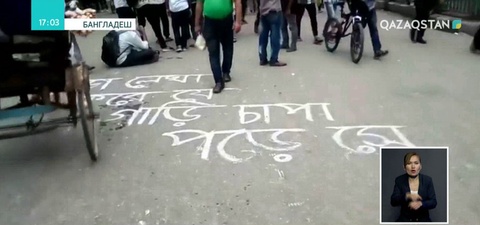 17:03 БАНГЛАДЕШ
QAZAQSTAN
লেখা
করে যে
গাড়ি চাপা
পড়ে সে